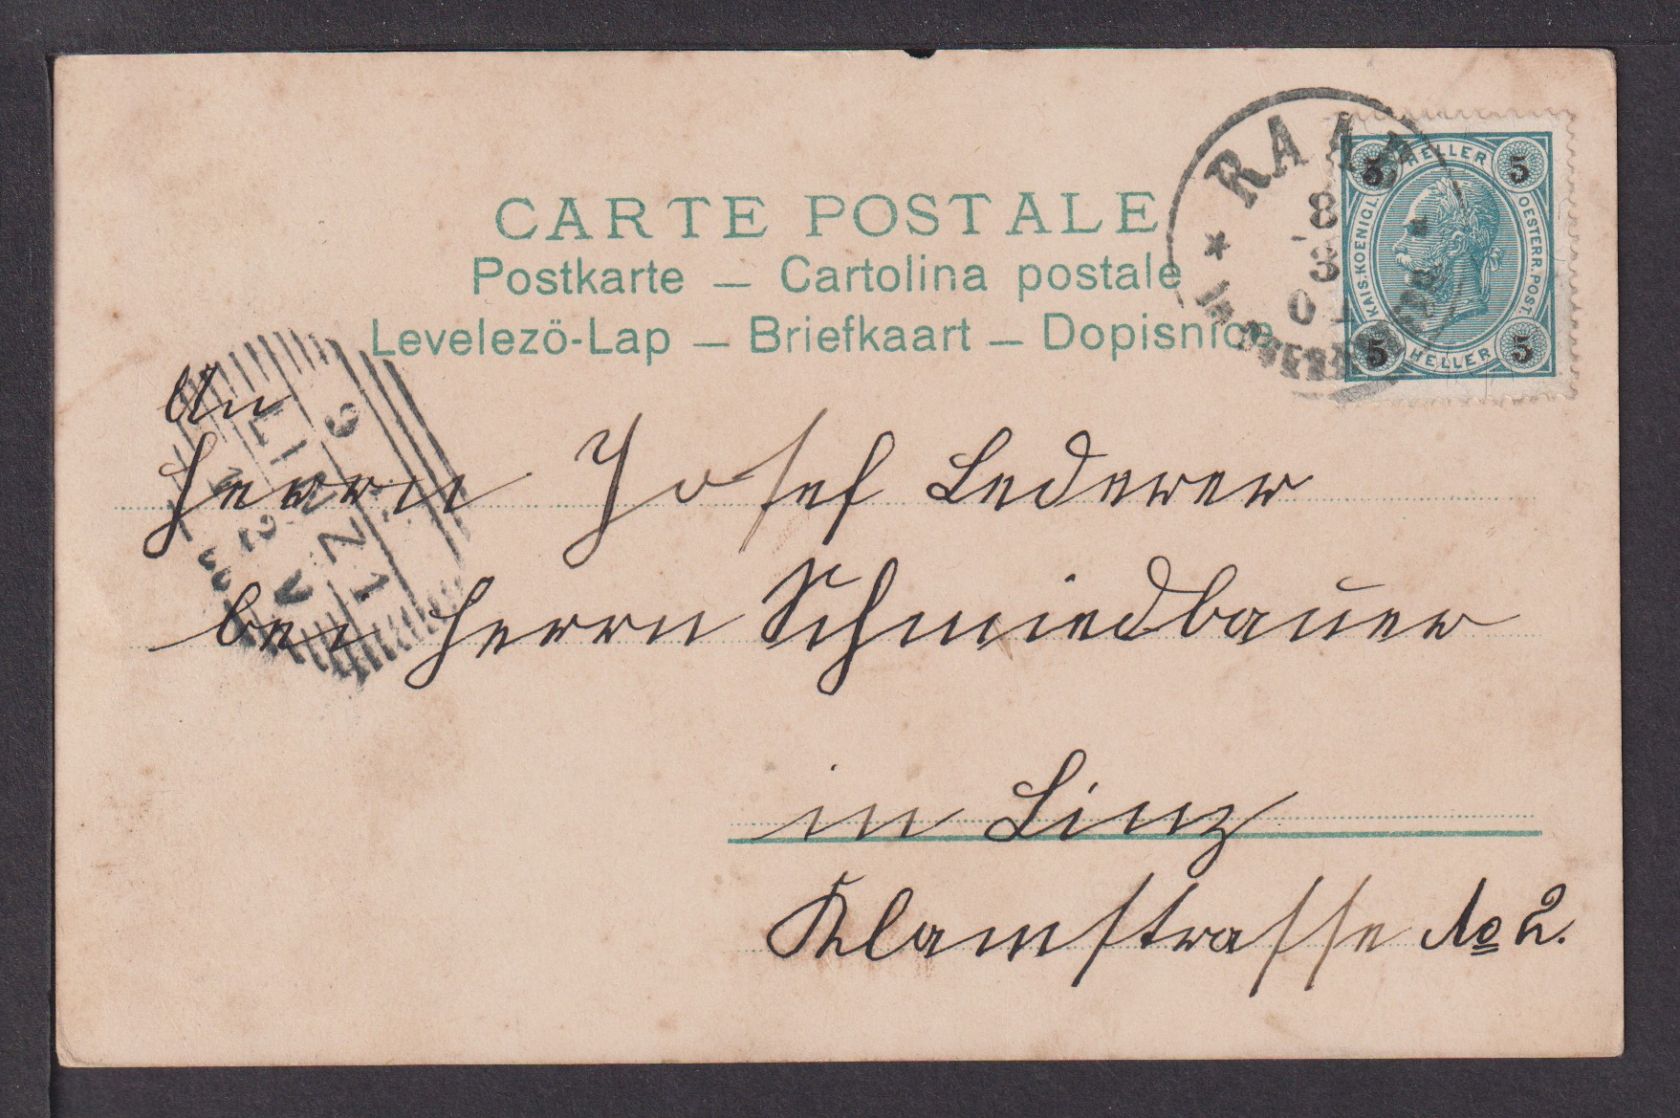 CARTE POSTALE
Postkarte — Cartolina postale
Levelezö-Lap — Briefkaart — Dopisnica
RAAB
8
3
0
5 HELLER 5
KAIS. KOENIGL. OESTERR. POST.
5 HELLER 5
LINZ 1
9
2
An
Herrn Josef Lederer
bei Herrn Schmiedbauer
in Linz
Klamstrasse No 2.